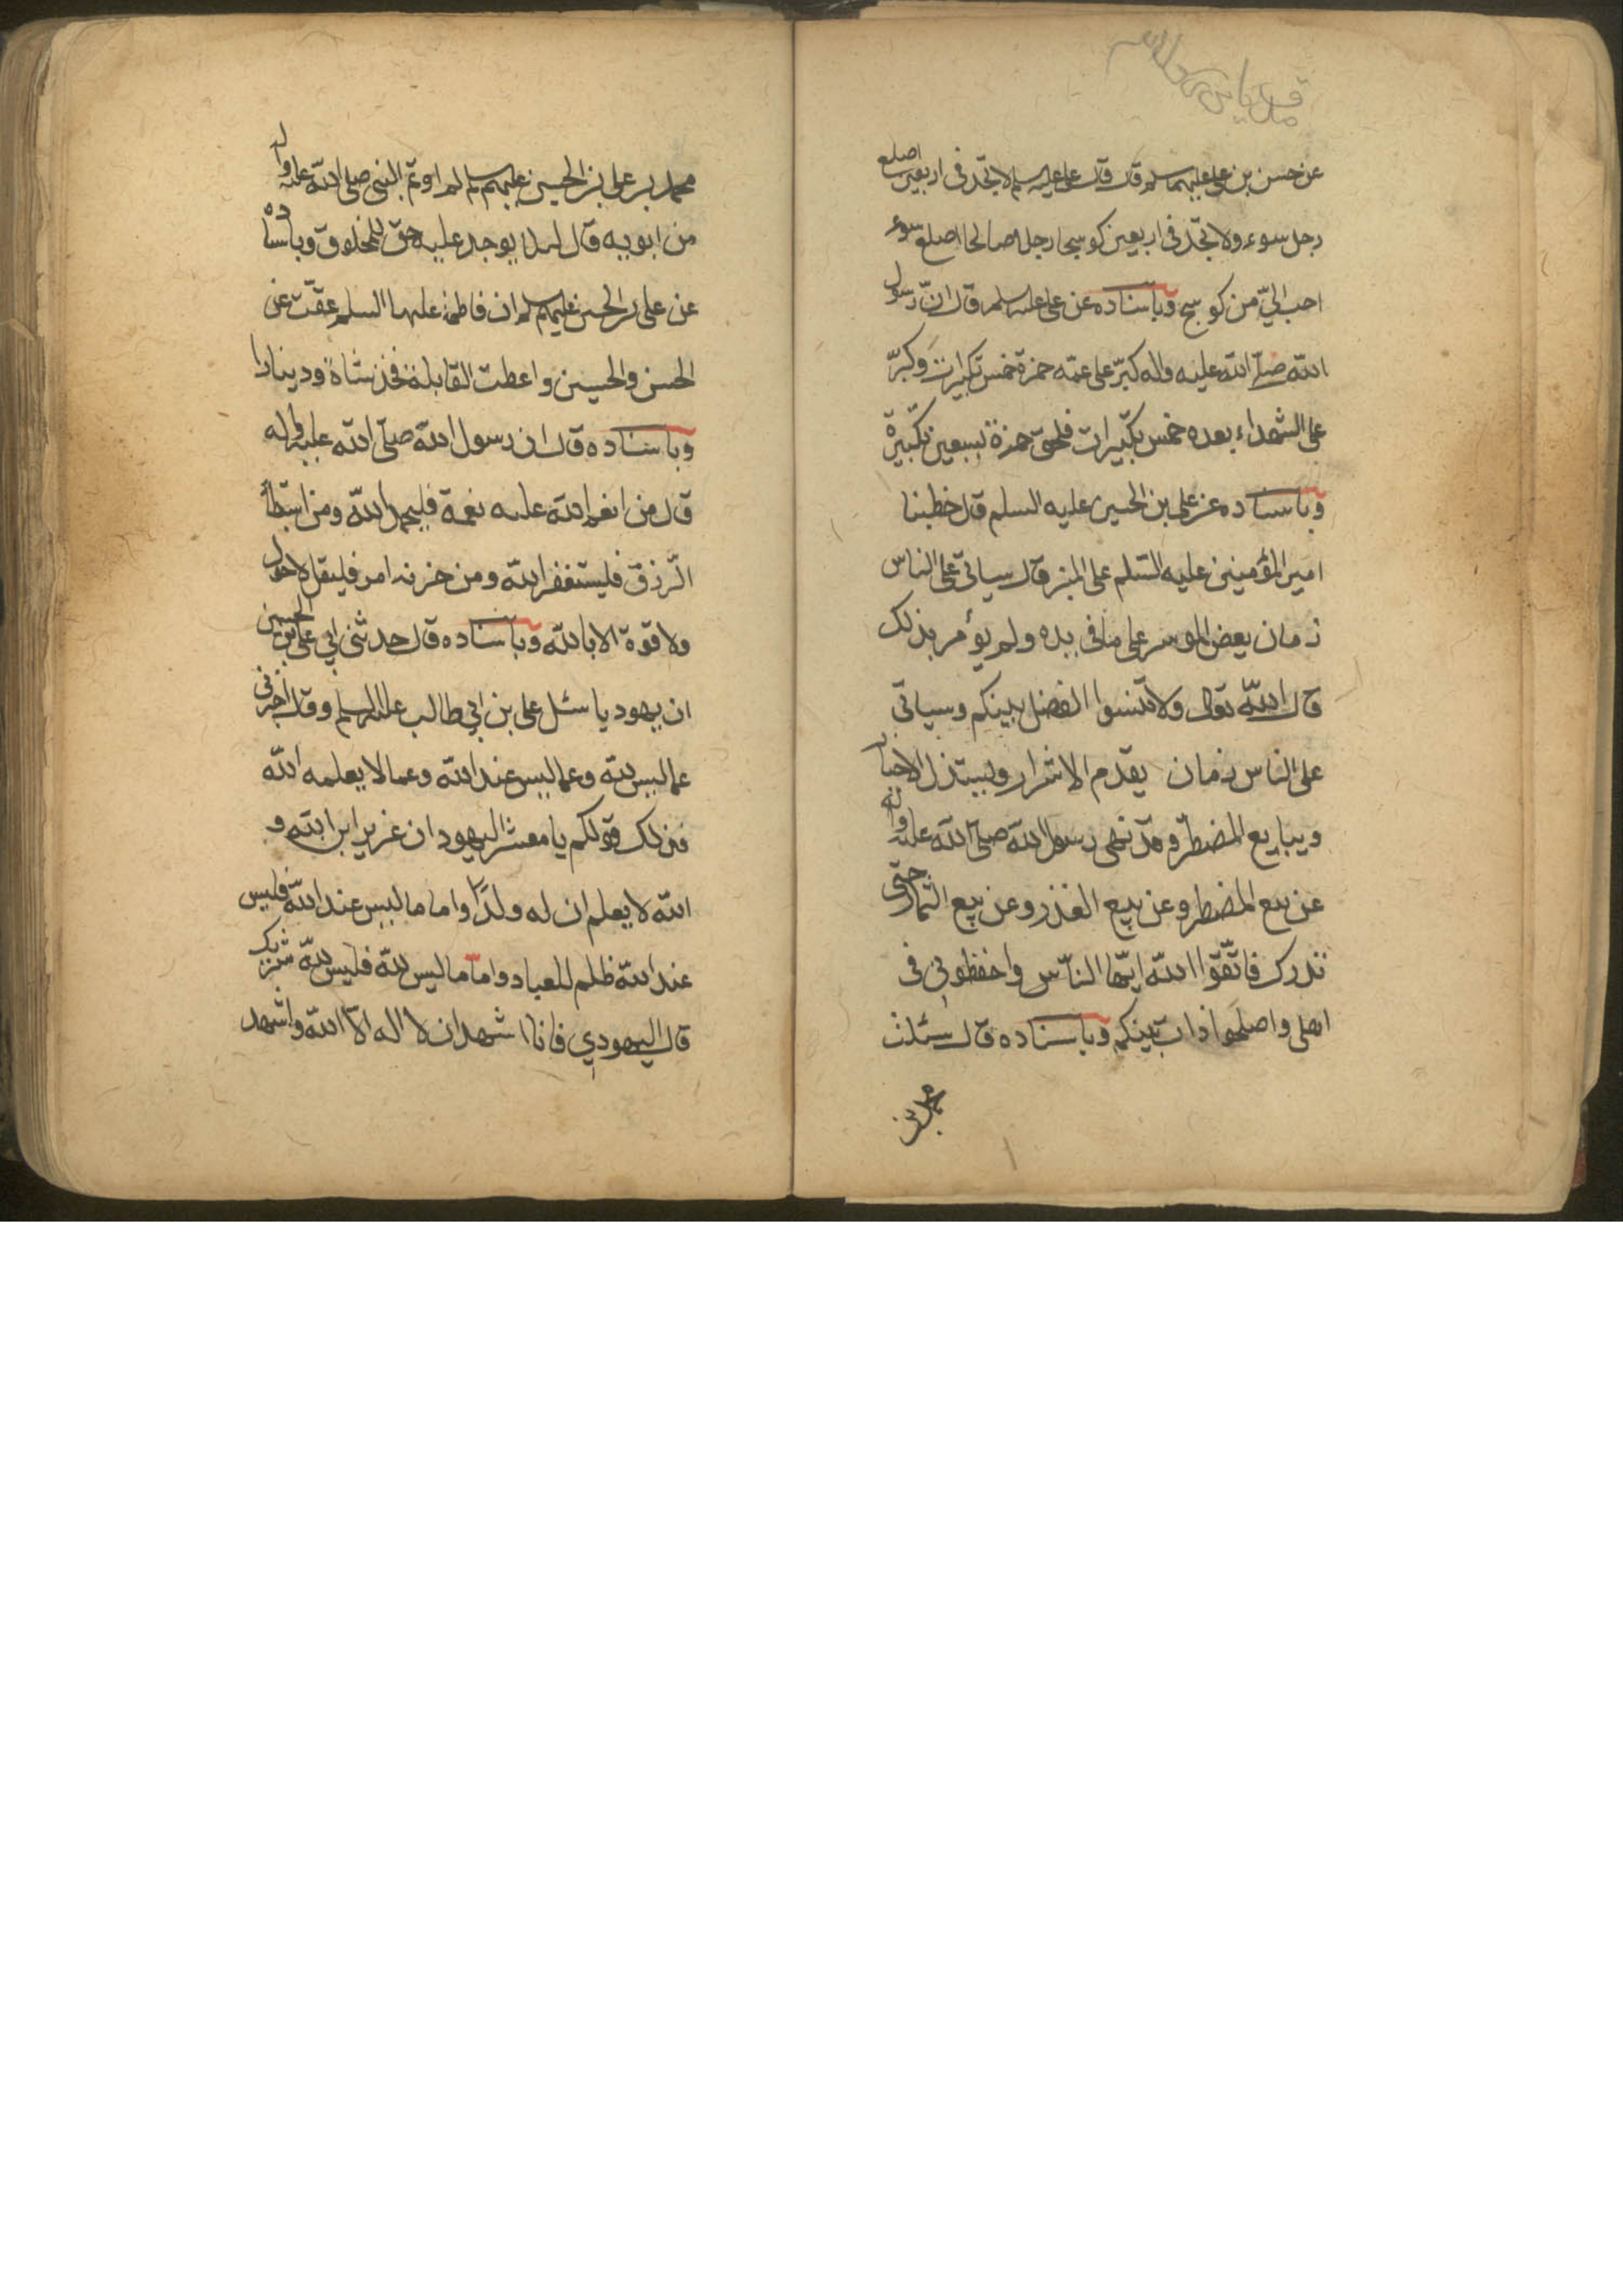 عن حسن بن علي عليهما سلم قال قال علي عليه سلم لا تجد في اربعين اصلع
رجل سوء ولا تجد في اربعين كوسجا رجلا صالحا اصلع سوء
احب اليّ من كوسج وباسناده عن علي عليه سلم قال انّ رسول
الله صلّى الله عليه واله كبّر على عمّه حمزة خمس تكبيرات وكبّر
على الشهداء بعده خمس تكبيرات فلحق حمزة بسبعين تكبيرة
وباسناده عن علي بن الحسين عليه السلم قال خطبنا
امير المؤمنين عليه السّلم على المنبر قال سياتي على الناس
زمان يعض الموسر على ما في يده ولم يؤمر بذلك
قال الله تعالى ولا تنسوا الفضل بينكم وسياتي
على الناس زمان يقدم الاشرار ويستذل الاخيار
ويبايع المضطرّ وقد نهى رسول الله صلّى الله عليه واله
عن بيع المضطر وعن بيع الغذر وعن بيع الثمار حتى
تدرك فاتّقوا الله ايّها النّاس واحفظوني في
اهلى واصلحوا ذات بينكم وباسناده قال سئلت
محمد بن
محمد بن على بن الحسين عليهم سلم لم اوتم النبى صلى الله عليه واله
من ابويه قال لئلا يوجد عليه حق للمخلوق وباسناده
عن على بن الحسين عليهم سلم ان فاطمة عليها السلم عقّت عن
الحسن والحسين واعطت القابلة فخذ شاة ودينارا
وباسناده قال ان رسول الله صلّى الله عليه واله
قال من انعم الله عليه نعمة فليحمد الله ومن استبطأ
الرّزق فليستغفر الله ومن حزنه امر فليقل لا حول
ولا قوة الا بالله وباسناده قال حدثنى ابي على بن الحسين
ان يهوديا سئل على بن ابي طالب عليه السلم وقال اخبرني
عما ليس لله وعما ليس عند الله وعما لا يعلمه الله
فذلك قولكم يا معشر اليهود ان عزير ابن الله و
الله لا يعلم ان له ولدًا واما ما ليس عند الله فليس
عند الله ظلم للعباد واما ما ليس لله فليس لله شريك
قال اليهودي فانا اشهد ان لا اله الّا الله واشهد